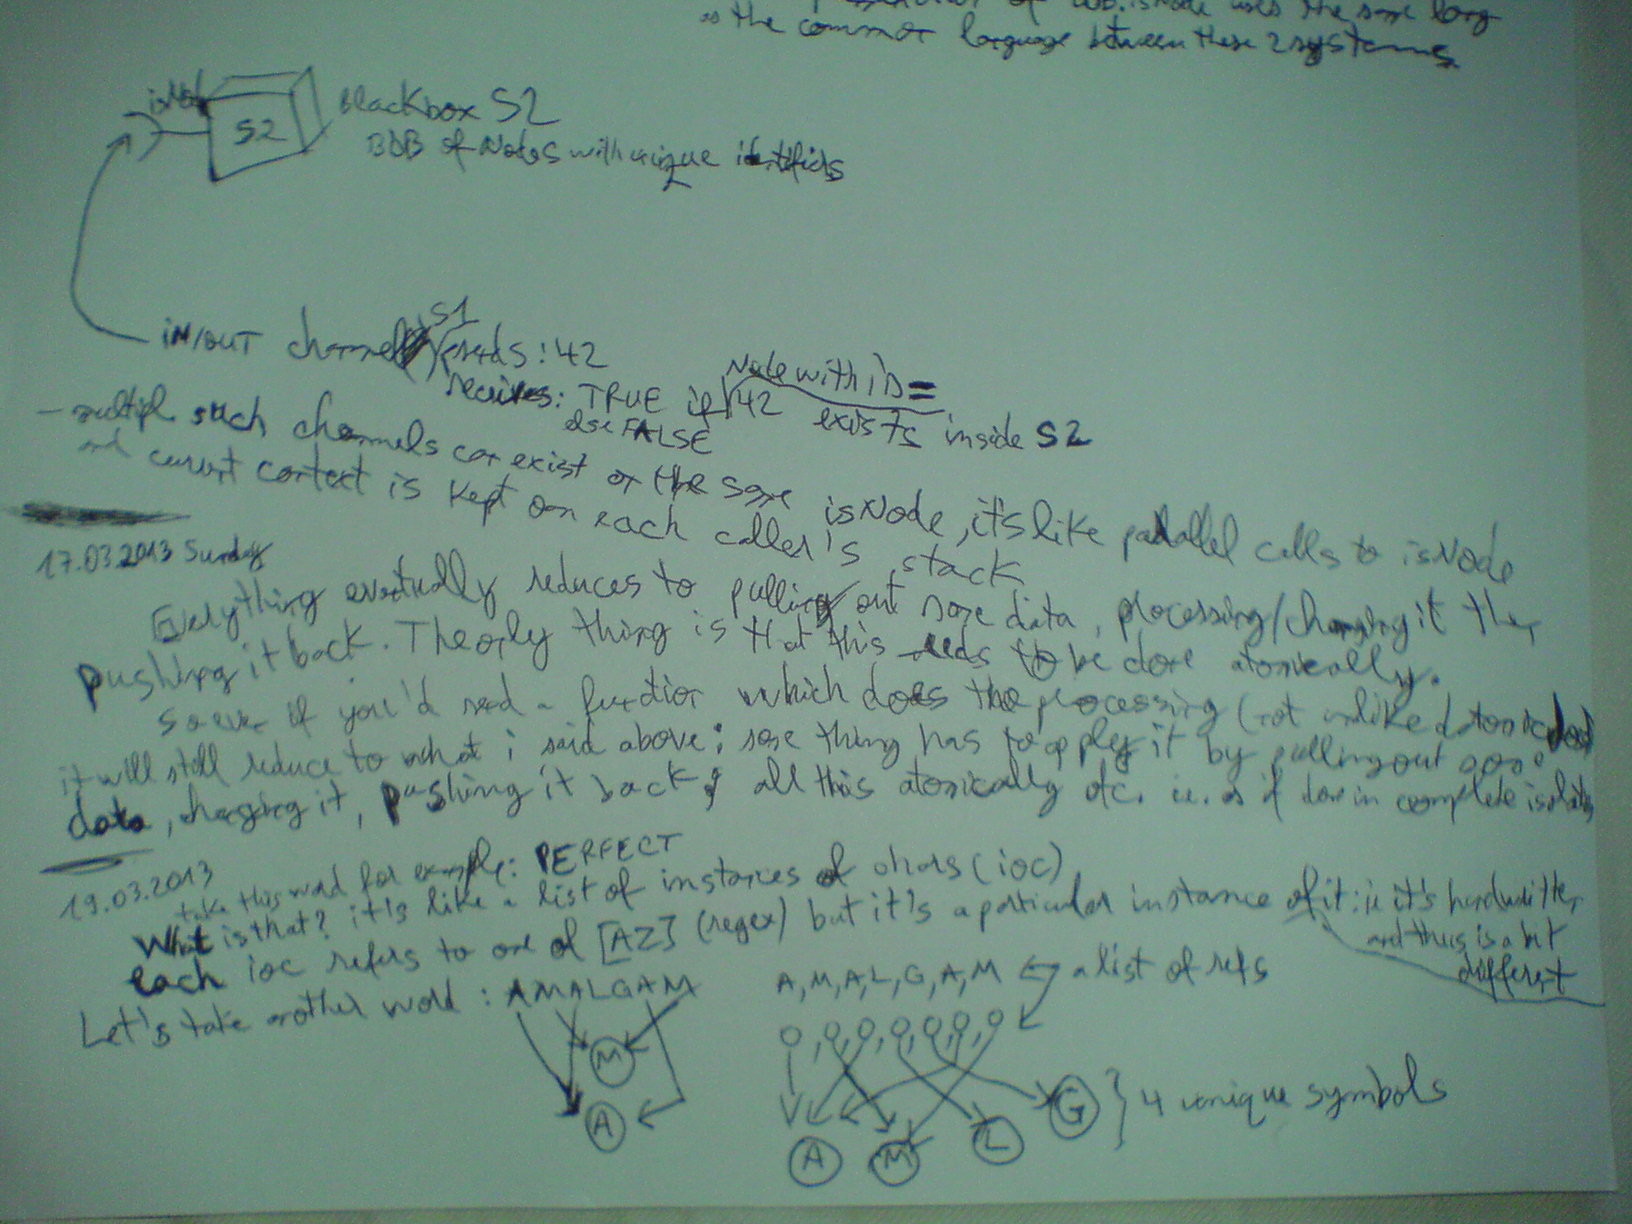 of isNode uses the same lang
as the common language between these 2 systems
isNode
S2
Blackbox S2
BDB of Nodes with unique identifiers
IN/OUT channel S1
sends: 42
receives: TRUE if Node with id = 42 exists inside S2
else FALSE
- multiple such channels can exist on the same isNode, it's like parallel calls to isNode
and current context is kept on each caller's stack
17.03.2013 Sunday
Everything eventually reduces to pulling out some data, processing/changing it then
pushing it back. The only thing is that this needs to be done atomically.
So even if you'd need a function which does the processing (not unlike datomic does)
it will still reduce to what i said above: some thing has to apply it by pulling out some
data, changing it, pushing it back; all this atomically etc. i.e. as if done in complete isolation
19.03.2013
take this word for example: PERFECT
What is that? it's like a list of instances of chars (ioc)
each ioc refers to one of [AZ] (regex) but it's a particular instance of it: ie it's handwritten
and thus is a bit
different
Let's take another word: AMALGAM
A, M, A, L, G, A, M
a list of refs
M
A
A
M
L
G
4 unique symbols